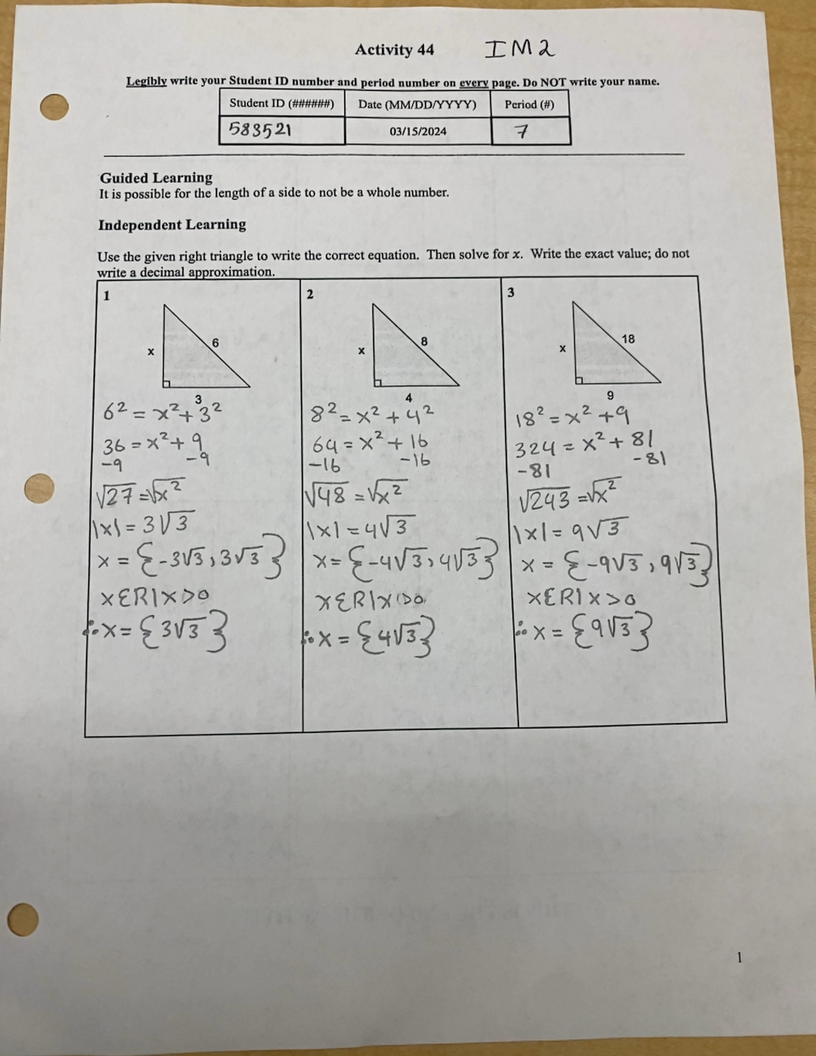 Activity 44 IM2
Legibly write your Student ID number and period number on every page. Do NOT write your name.
Student ID (######) Date (MM/DD/YYYY) Period (#)
583521 03/15/2024 7
Guided Learning
It is possible for the length of a side to not be a whole number.
Independent Learning
Use the given right triangle to write the correct equation. Then solve for x. Write the exact value; do not
write a decimal approximation.
1
x
6
3
6² = x² + 3²
36 = x² + 9
-9 -9
√27 = √x²
|x| = 3√3
x = {-3√3, 3√3}
x∈R|x>0
∴ x = {3√3}
2
x
8
4
8² = x² + 4²
64 = x² + 16
-16 -16
√48 = √x²
|x| = 4√3
x = {-4√3, 4√3}
x∈R|x>0
∴ x = {4√3}
3
x
18
9
18² = x² + 9
324 = x² + 81
-81 -81
√243 = √x²
|x| = 9√3
x = {-9√3, 9√3}
x∈R|x>0
∴ x = {9√3}
1